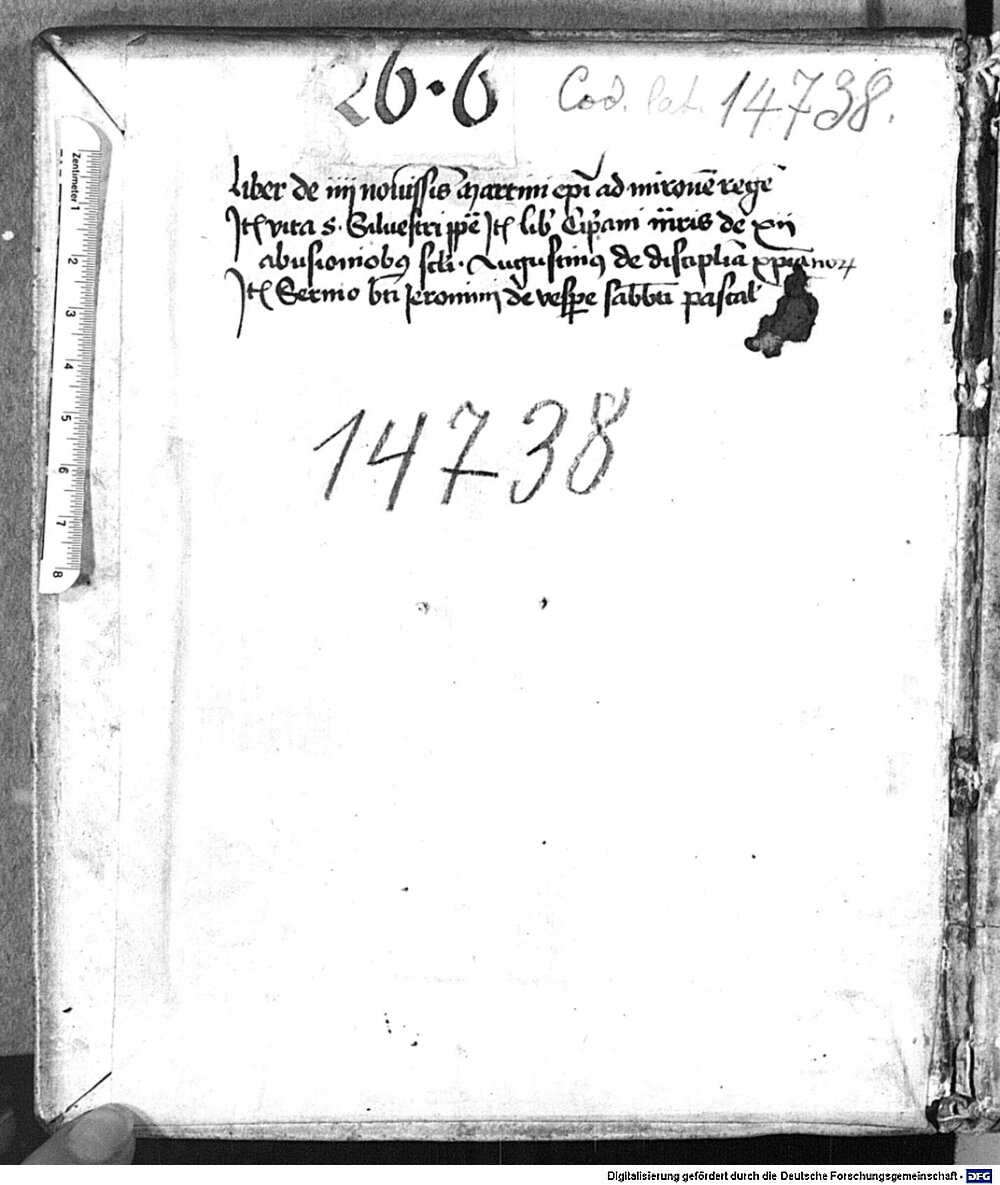 26·6 Cod. lat. 14738.
Liber de iiij novissis Martini epi ad mironē regē
Itē vita s. Silvestri ppe Itē lib Cipani mris de xii
abusionibꝰ scli. Augustinꝰ de disciplīa xpianoꝝ
Itē Sermo bti Jeronimi de vespe sabbti pascal
14738
Zentimeter 1
2
3
4
5
6
7
8
Digitalisierung gefördert durch die Deutsche Forschungsgemeinschaft - DFG